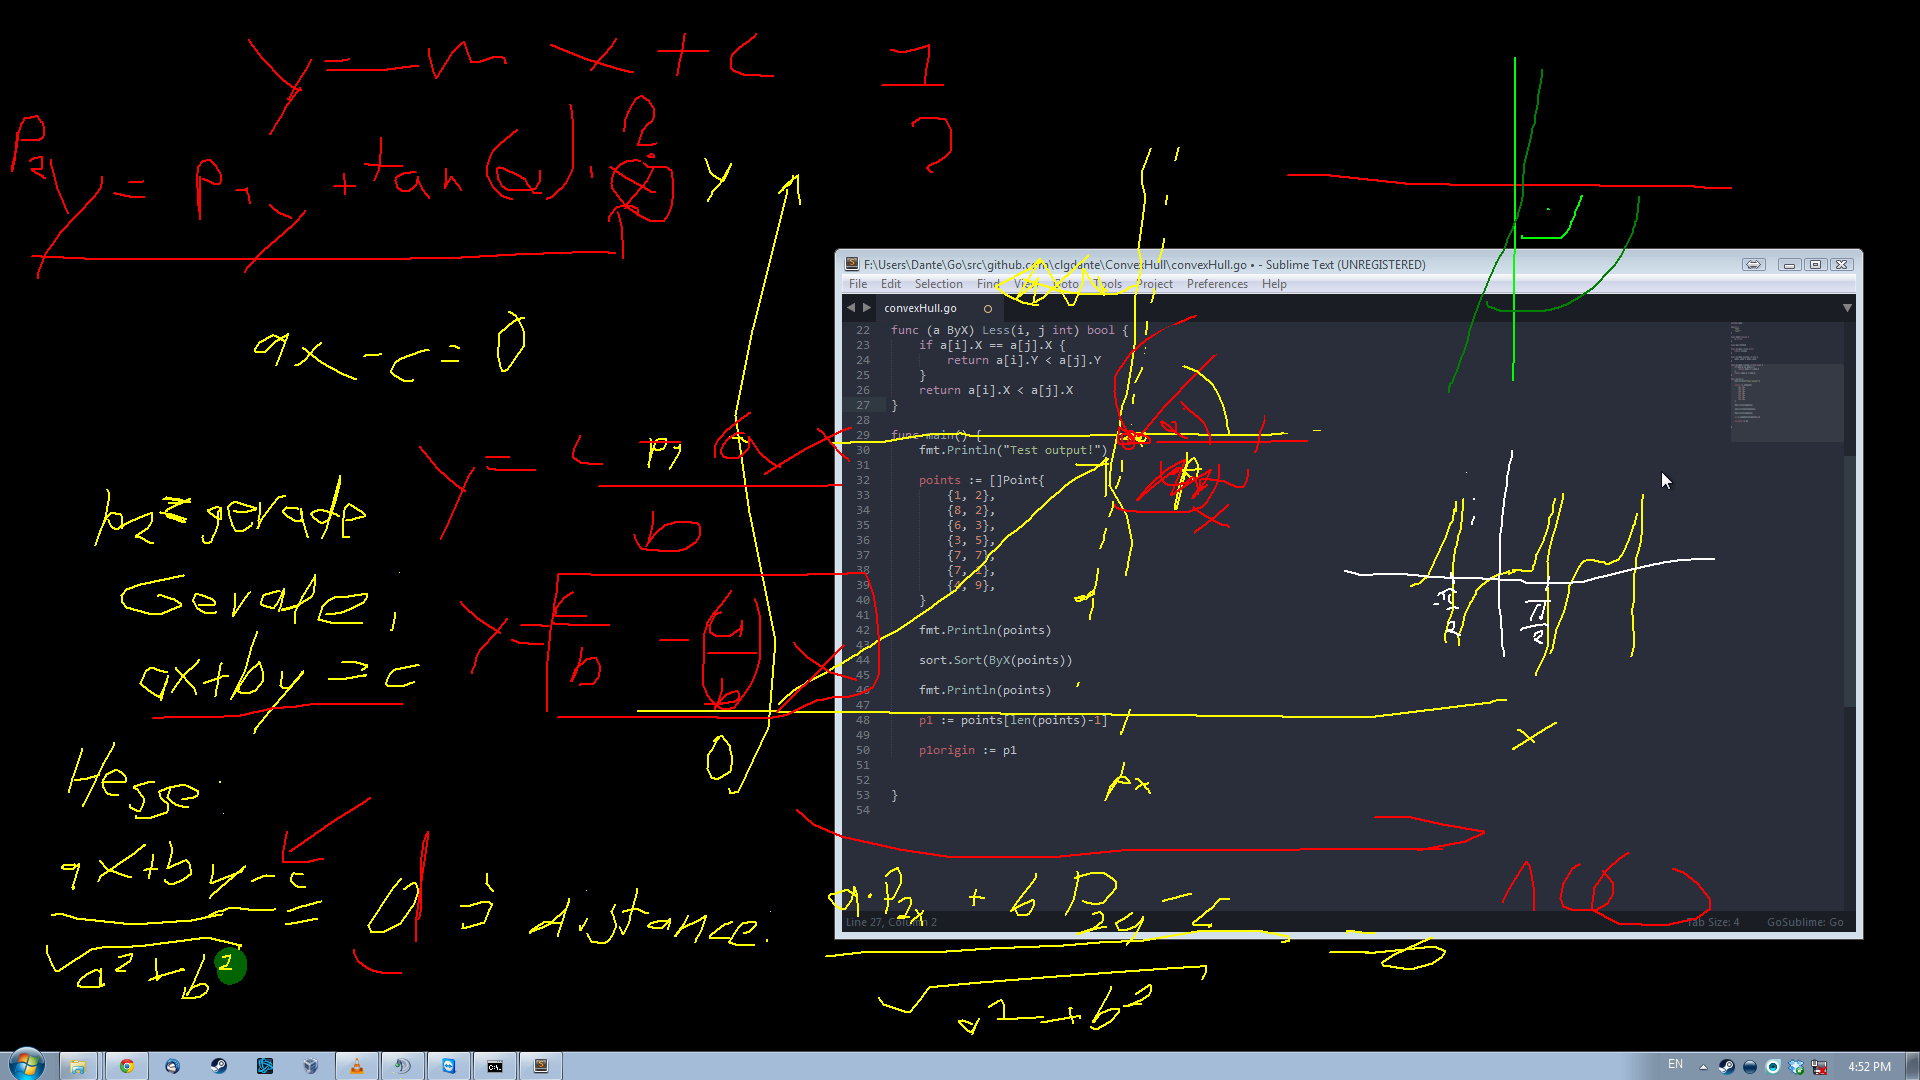 y = m x + c
1
2
P2y = P1y + tan(α) · x
?
Y
ax - c = 0
y = c - ax
b
py
p2 = gerade
Gerade:
ax + by = c
y = c/b - (a/b) x
0
x
px
Hesse:
ax + by - c = 0 ⇒ distance: a · P2x + b P2y - c =
√a² + b²
√a² + b²
-π/2
π/2
F:\Users\Dante\Go\src\github.com\clgdante\ConvexHull\convexHull.go • - Sublime Text (UNREGISTERED)
File Edit Selection Find View Goto Tools Project Preferences Help
convexHull.go
22 func (a ByX) Less(i, j int) bool {
23 if a[i].X == a[j].X {
24 return a[i].Y < a[j].Y
25 }
26 return a[i].X < a[j].X
27 }
28
29 func main() {
30 fmt.Println("Test output!")
31
32 points := []Point{
33 {1, 2},
34 {8, 2},
35 {6, 3},
36 {3, 5},
37 {7, 7},
38 {7, 1},
39 {4, 9},
40 }
41
42 fmt.Println(points)
43
44 sort.Sort(ByX(points))
45
46 fmt.Println(points)
47
48 p1 := points[len(points)-1]
49
50 p1origin := p1
51
52
53 }
54
Line 27, Column 2
Tab Size: 4 GoSublime: Go
EN
4:52 PM